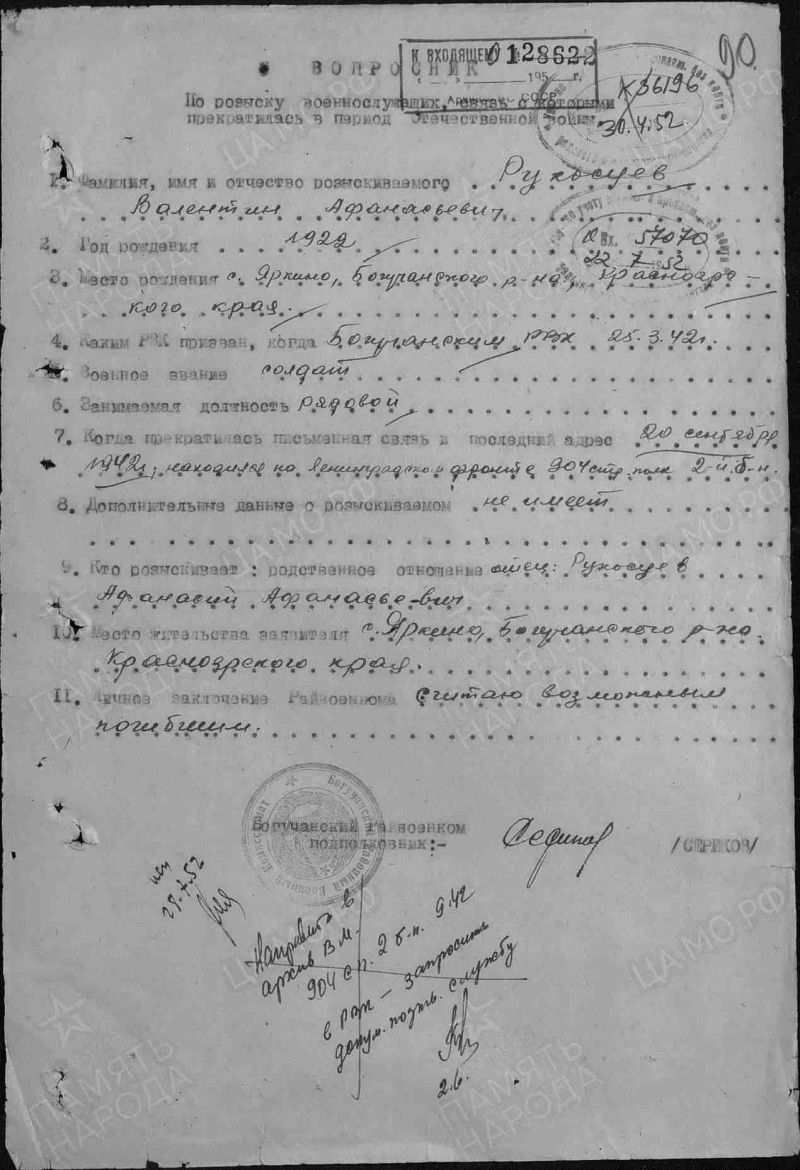 К ВХОДЯЩЕМУ № 0128622
195 г.
90.
ВОПРОСНИК
К36196
По розыску военнослужащих, связь с которыми
прекратилась в период Отечественной войны
30.4.52
1. Фамилия, имя и отчество розыскиваемого Рукосуев
Валентин Афанасьевич
2. Год рождения 1922
Вх. 57070
3. Место рождения с. Яркино, Богучанского р-на, Красноярс-
кого края.
4. Каким РВК призван, когда Богучанским РВК 25.3.42г.
5. Военное звание солдат
6. Занимаемая должность рядовой
7. Когда прекратилась письменная связь и последний адрес 20 сентября
1942г, находился на Ленинградском фронте 904 стр. полк 2-й б-н.
8. Дополнительные данные о розыскиваемом не имеет
9. Кто розыскивает: родственное отношение отец: Рукосуев
Афанасий Афанасьевич
10. Место жительства заявителя с. Яркино, Богучанского р-на.
Красноярского края.
11. Личное заключение Райвоенкома Считаю возможным
погибшим.
Богучанский Районный Военный Комиссариат
Богучанский райвоенком
подполковник:-
/СЕРИКОВ/
Направить в
архив В.М.
904 с.п. 2 б-н. 9.42
в РВК - запросить
докум. подтв. службу
2.6.
ПАМЯТЬ НАРОДА
ЦАМО.РФ